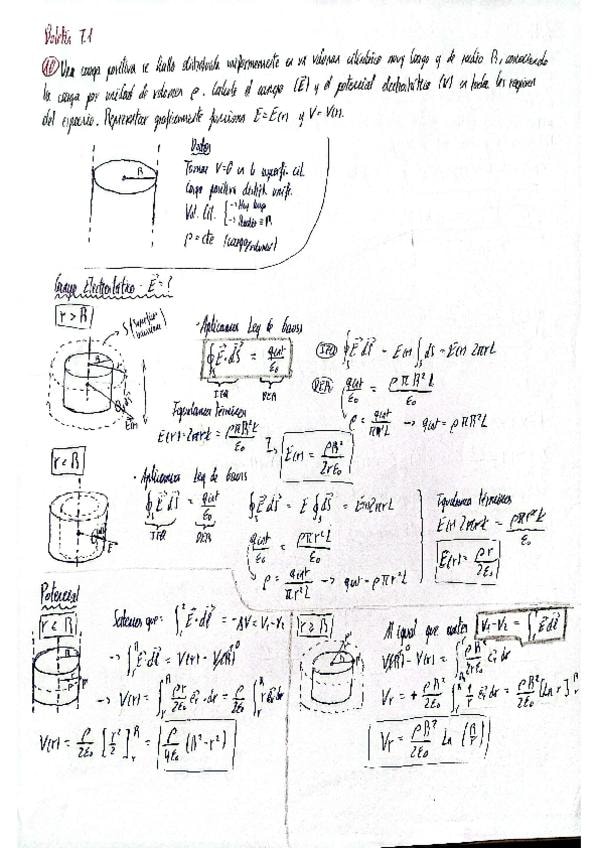 Boletín 7.1
1º Una carga positiva se halla distribuida uniformemente en un volumen cilíndrico muy largo y de radio R, conociendo
la carga por unidad de volumen ρ. Calcule el campo (E⃗) y el potencial electrostático (V) en todas las regiones
del espacio. Representar gráficamente funciones E=E(r) y V=V(r).
Datos
Tomar V=0 en la superfi. cil.
Carga positiva distrib. unif.
Vol. Cil. { → Muy largo
→ Radio = R
ρ = cte (carga/volumen)
R
Campo Electrostático E⃗ = ?
r > R
S (Superficie
· Aplicamos Ley de Gauss
∮ₛ E⃗·dS⃗ = qint/ε₀
IZQ DER
IZQ ∮ₛ E⃗ dS⃗ = E(r) ∫ₛ dS = E(r) 2πrL
DER qint/ε₀ = ρπR²L/ε₀
ρ = qint/πR²L → qint = ρπR²L
Igualamos términos
E(r)·2πrL = ρπR²L/ε₀
E(r) = ρR²/2rε₀
r < R
· Aplicamos Ley de Gauss
∮ₛ E⃗ dS⃗ = qint/ε₀
IZQ DER
∮ₛ E⃗ dS⃗ = E ∮ₛ dS = E(r) 2πrL
qint/ε₀ = ρπr²L/ε₀
ρ = qint/πr²L → qint = ρπr²L
Igualamos términos
E(r) 2πrL = ρπr²L/ε₀
E(r) = ρr/2ε₀
Potencial
r < R
Sabemos que: ∫₁² E⃗·dl⃗ = -ΔV = V₁-V₂
→ ∫ᵣᴿ E⃗·dl⃗ = V(r) - V(R)⁰
→ V(r) = ∫ᵣᴿ ρr/2ε₀ e⃗ᵣ·dr = ρ/2ε₀ ∫ᵣᴿ r e⃗ᵣ dr
V(r) = ρ/2ε₀ [r²/2]ᵣᴿ = ρ/4ε₀ (R²-r²)
r ≥ R
Al igual que antes V₁-V₂ = ∫₁² E⃗ dl⃗
V(R)⁰ - V(r) = ∫ᴿʳ ρR²/2rε₀ e⃗ᵣ dr
Vr = + ρR²/2ε₀ ∫ᵣᴿ 1/r e⃗ᵣ dr = ρR²/2ε₀ [Ln r]ᵣᴿ
Vr = ρR²/2ε₀ Ln (R/r)